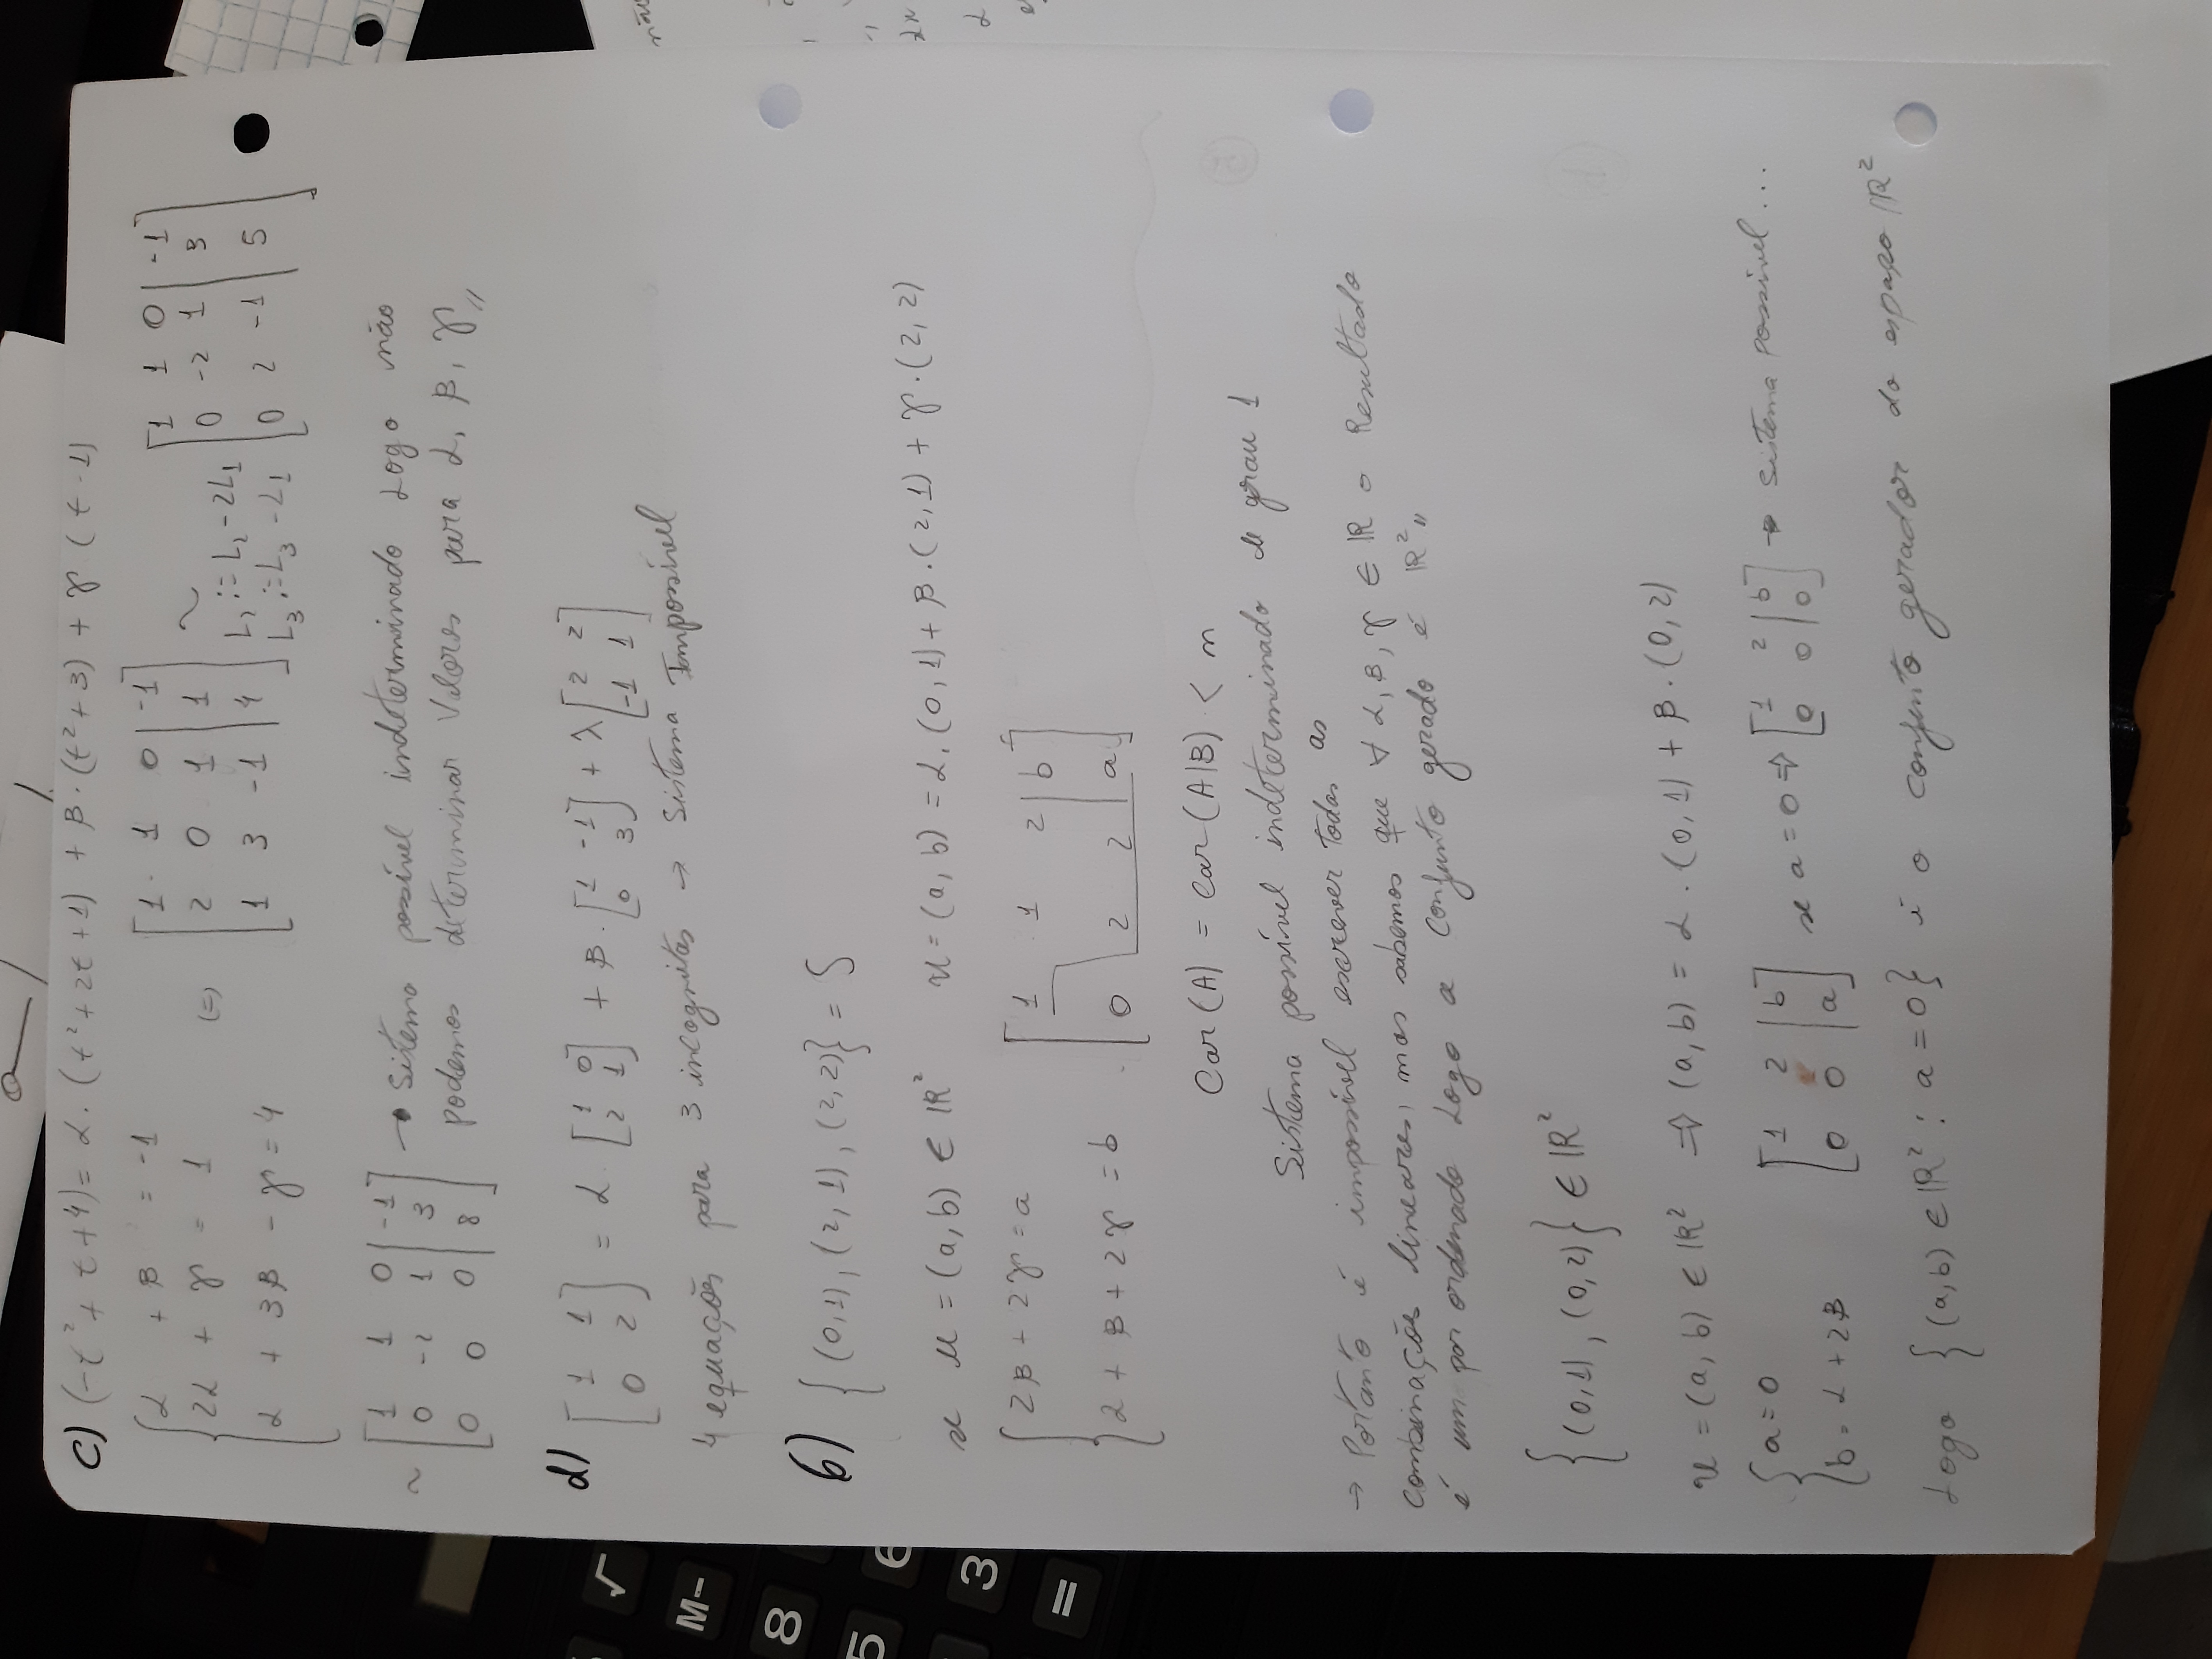 c) (-t² + t + 4) = α. (t² + 2t + 1) + β. (t² + 3) + γ (t - 1)
{ α + β = -1
2α + γ = 1
α + 3β - γ = 4
(=)
[ 1 1 0 | -1
2 0 1 | 1
1 3 -1 | 4 ]
~
L₂ := L₂ - 2L₁
L₃ := L₃ - L₁
[ 1 1 0 | -1
0 -2 1 | 3
0 2 -1 | 5 ]
~ [ 1 1 0 | -1
0 -2 1 | 3
0 0 0 | 8 ]
→ Sistema possível indeterminado Logo não
podemos determinar Valores para α, β, γ,,
d) [ 1 1
0 2 ] = α. [ 1 0
2 1 ] + β. [ 1 -1
0 3 ] + λ [ 2 2
-1 1 ]
4 equações para 3 incognitas → Sistema Impossível
6) { (0,1), (2,1), (2,2) } = S
se u = (a,b) ∈ ℝ² u = (a,b) = α. (0,1) + β. (2,1) + γ. (2,2)
{ 2β + 2γ = a
α + β + 2γ = b
[ 1 1 2 | b
0 2 2 | a ]
Car(A) = car(A|B) < n
Sistema possível indeterminado de grau 1
→ Portanto é impossível escrever todas as
combinações lineares, mas sabemos que ∀ α, β, γ ∈ ℝ o Resultado
é um par ordenado Logo o conjunto gerado é ℝ²,,
{ (0,1), (0,2) } ∈ ℝ²
u = (a,b) ∈ ℝ² ⇒ (a,b) = α . (0,1) + β . (0,2)
{ a = 0
b = α + 2β
[ 1 2 | b
0 0 | a ]
se a = 0 ⇒ [ 1 2 | b
0 0 | 0 ] → Sistema possível ...
Logo { (a,b) ∈ ℝ² : a = 0 } é o conjunto gerador do espaço ℝ²
√
M-
8
5
6
3
=
não